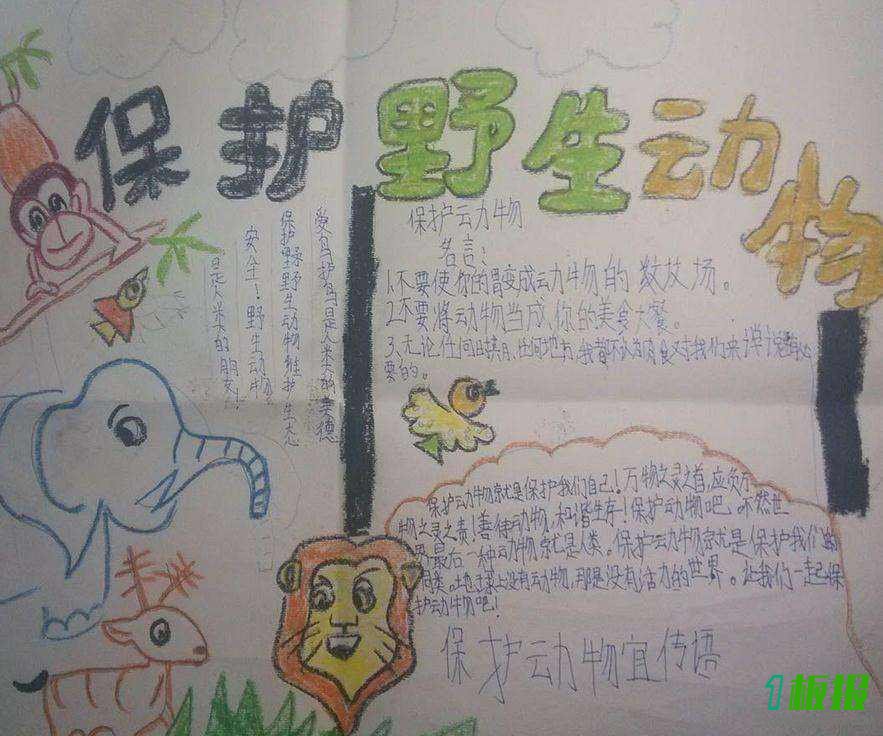 保护野生动物
爱鸟护鸟是人类的美德
保护野野生动物维护生态
安全！野生动物
是人类的朋友！
保护动物
名言：
1.不要使你的胃变成动物的坟场。
2.不要将动物当成,你的美食大餐。
3、无论任何日期,任何地方,我都不认为肉食对我们来说是有必
要的。
保护动物就是保护我们自己！万物之灵之首,应负万
物之灵之责！善使动物,和谐生存！保护动物吧,不然世
界最后一种动物就是人类。保护动物就是保护我们的
同类。地球上没有动物,那是没有活力的世界。让我们一起保
护动物吧！
保护动物宣传语
1板报